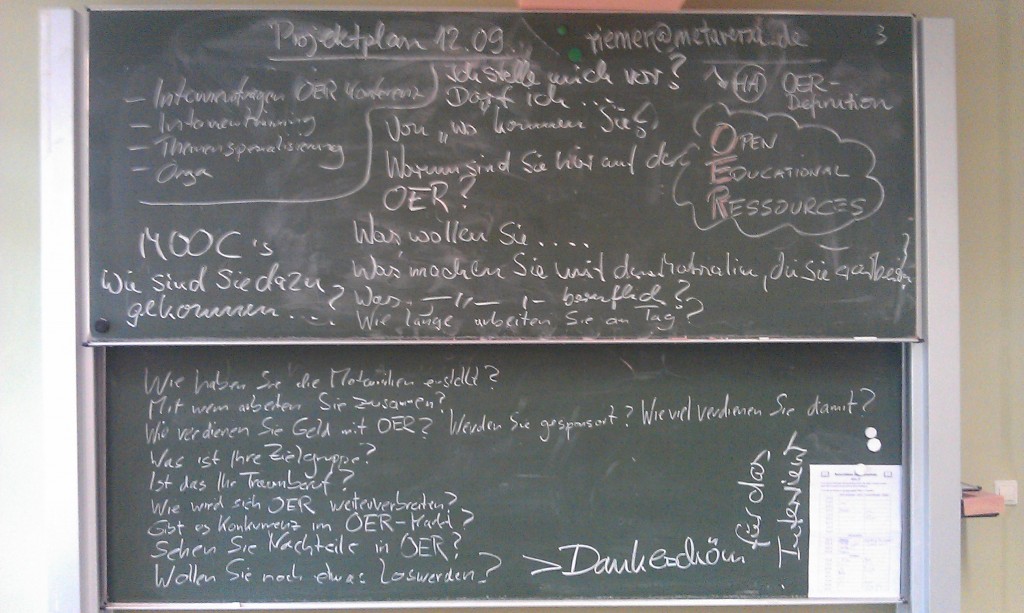 Projektplan 12.09.
riemer@metaverxi.de
3
- Interviewfragen OER Konferenz
- Interviewtraining
- Themenspezialisierung
- Orga
Ich stelle mich vor?
Darf ich ...
Von „wo" kommen Sie?
Warum sind Sie hier auf der
OER?
HA OER-
Definition
OPEN
EDUCATIONAL
RESSOURCES
MOOC's
Wie sind Sie dazu
gekommen...?
Was wollen Sie ....
Was machen Sie mit den Materialien, die Sie
Was -"- ,- beruflich?
Wie lange arbeiten Sie am Tag?
Wie haben Sie die Materialien erstellt?
Mit wem arbeiten Sie zusammen?
Wie verdienen Sie Geld mit OER? Werden Sie gesponsort? Wie viel verdienen Sie damit?
Was ist Ihre Zielgruppe?
Ist das Ihr Traumberuf?
Wie wird sich OER weiterverbreiten?
Gibt es Konkurrenz im OER-Markt?
Sehen Sie Nachteile in OER?
Wollen Sie noch etwas Loswerden?
> Dankeschön für das Interview